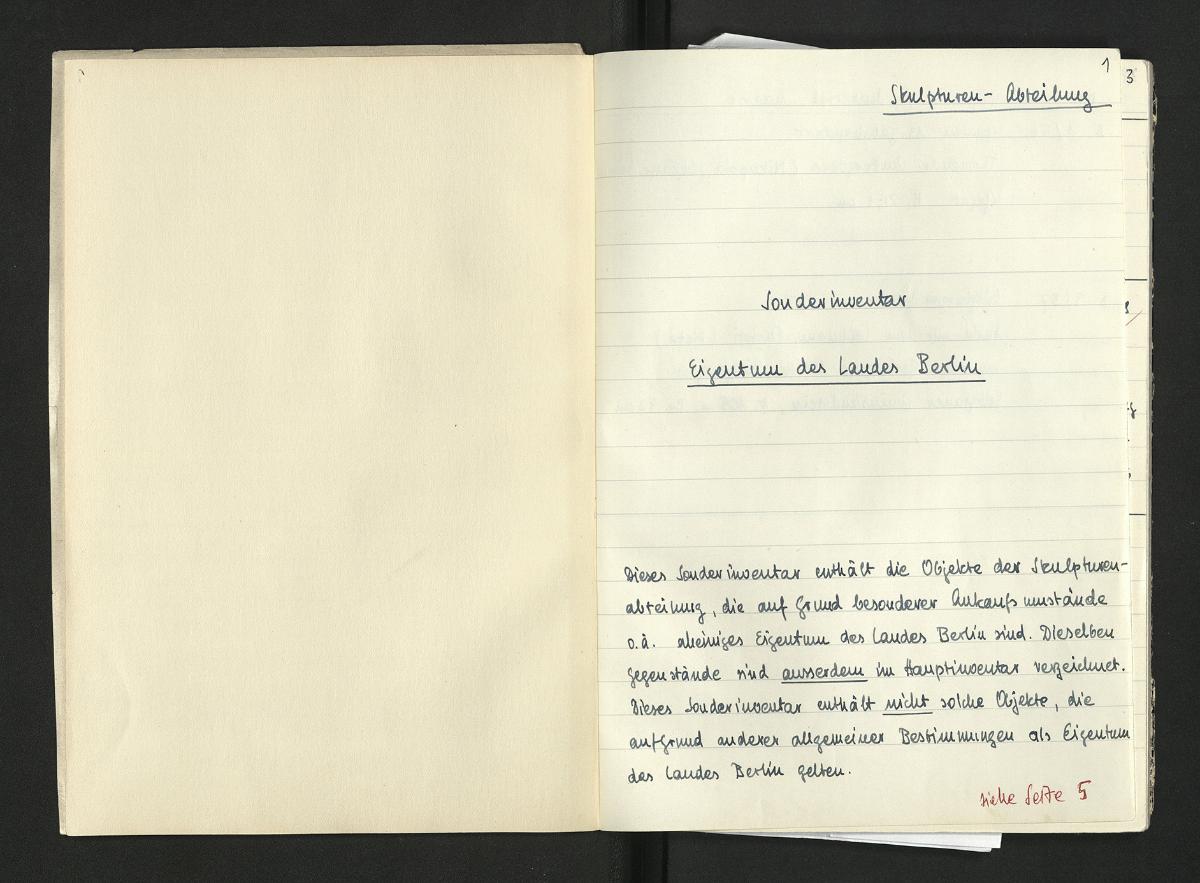 1
3
Skulpturen-Abteilung
Sonderinventar
Eigentum des Landes Berlin
Dieses Sonderinventar enthält die Objekte der Skulpturen-
abteilung, die auf Grund besonderer Ankaufsumstände
o.ä. alleiniges Eigentum des Landes Berlin sind. Dieselben
Gegenstände sind ausserdem im Hauptinventar verzeichnet.
Dieses Sonderinventar enthält nicht solche Objekte, die
aufGrund anderer allgemeiner Bestimmungen als Eigentum
des Landes Berlin gelten.
siehe Seite 5